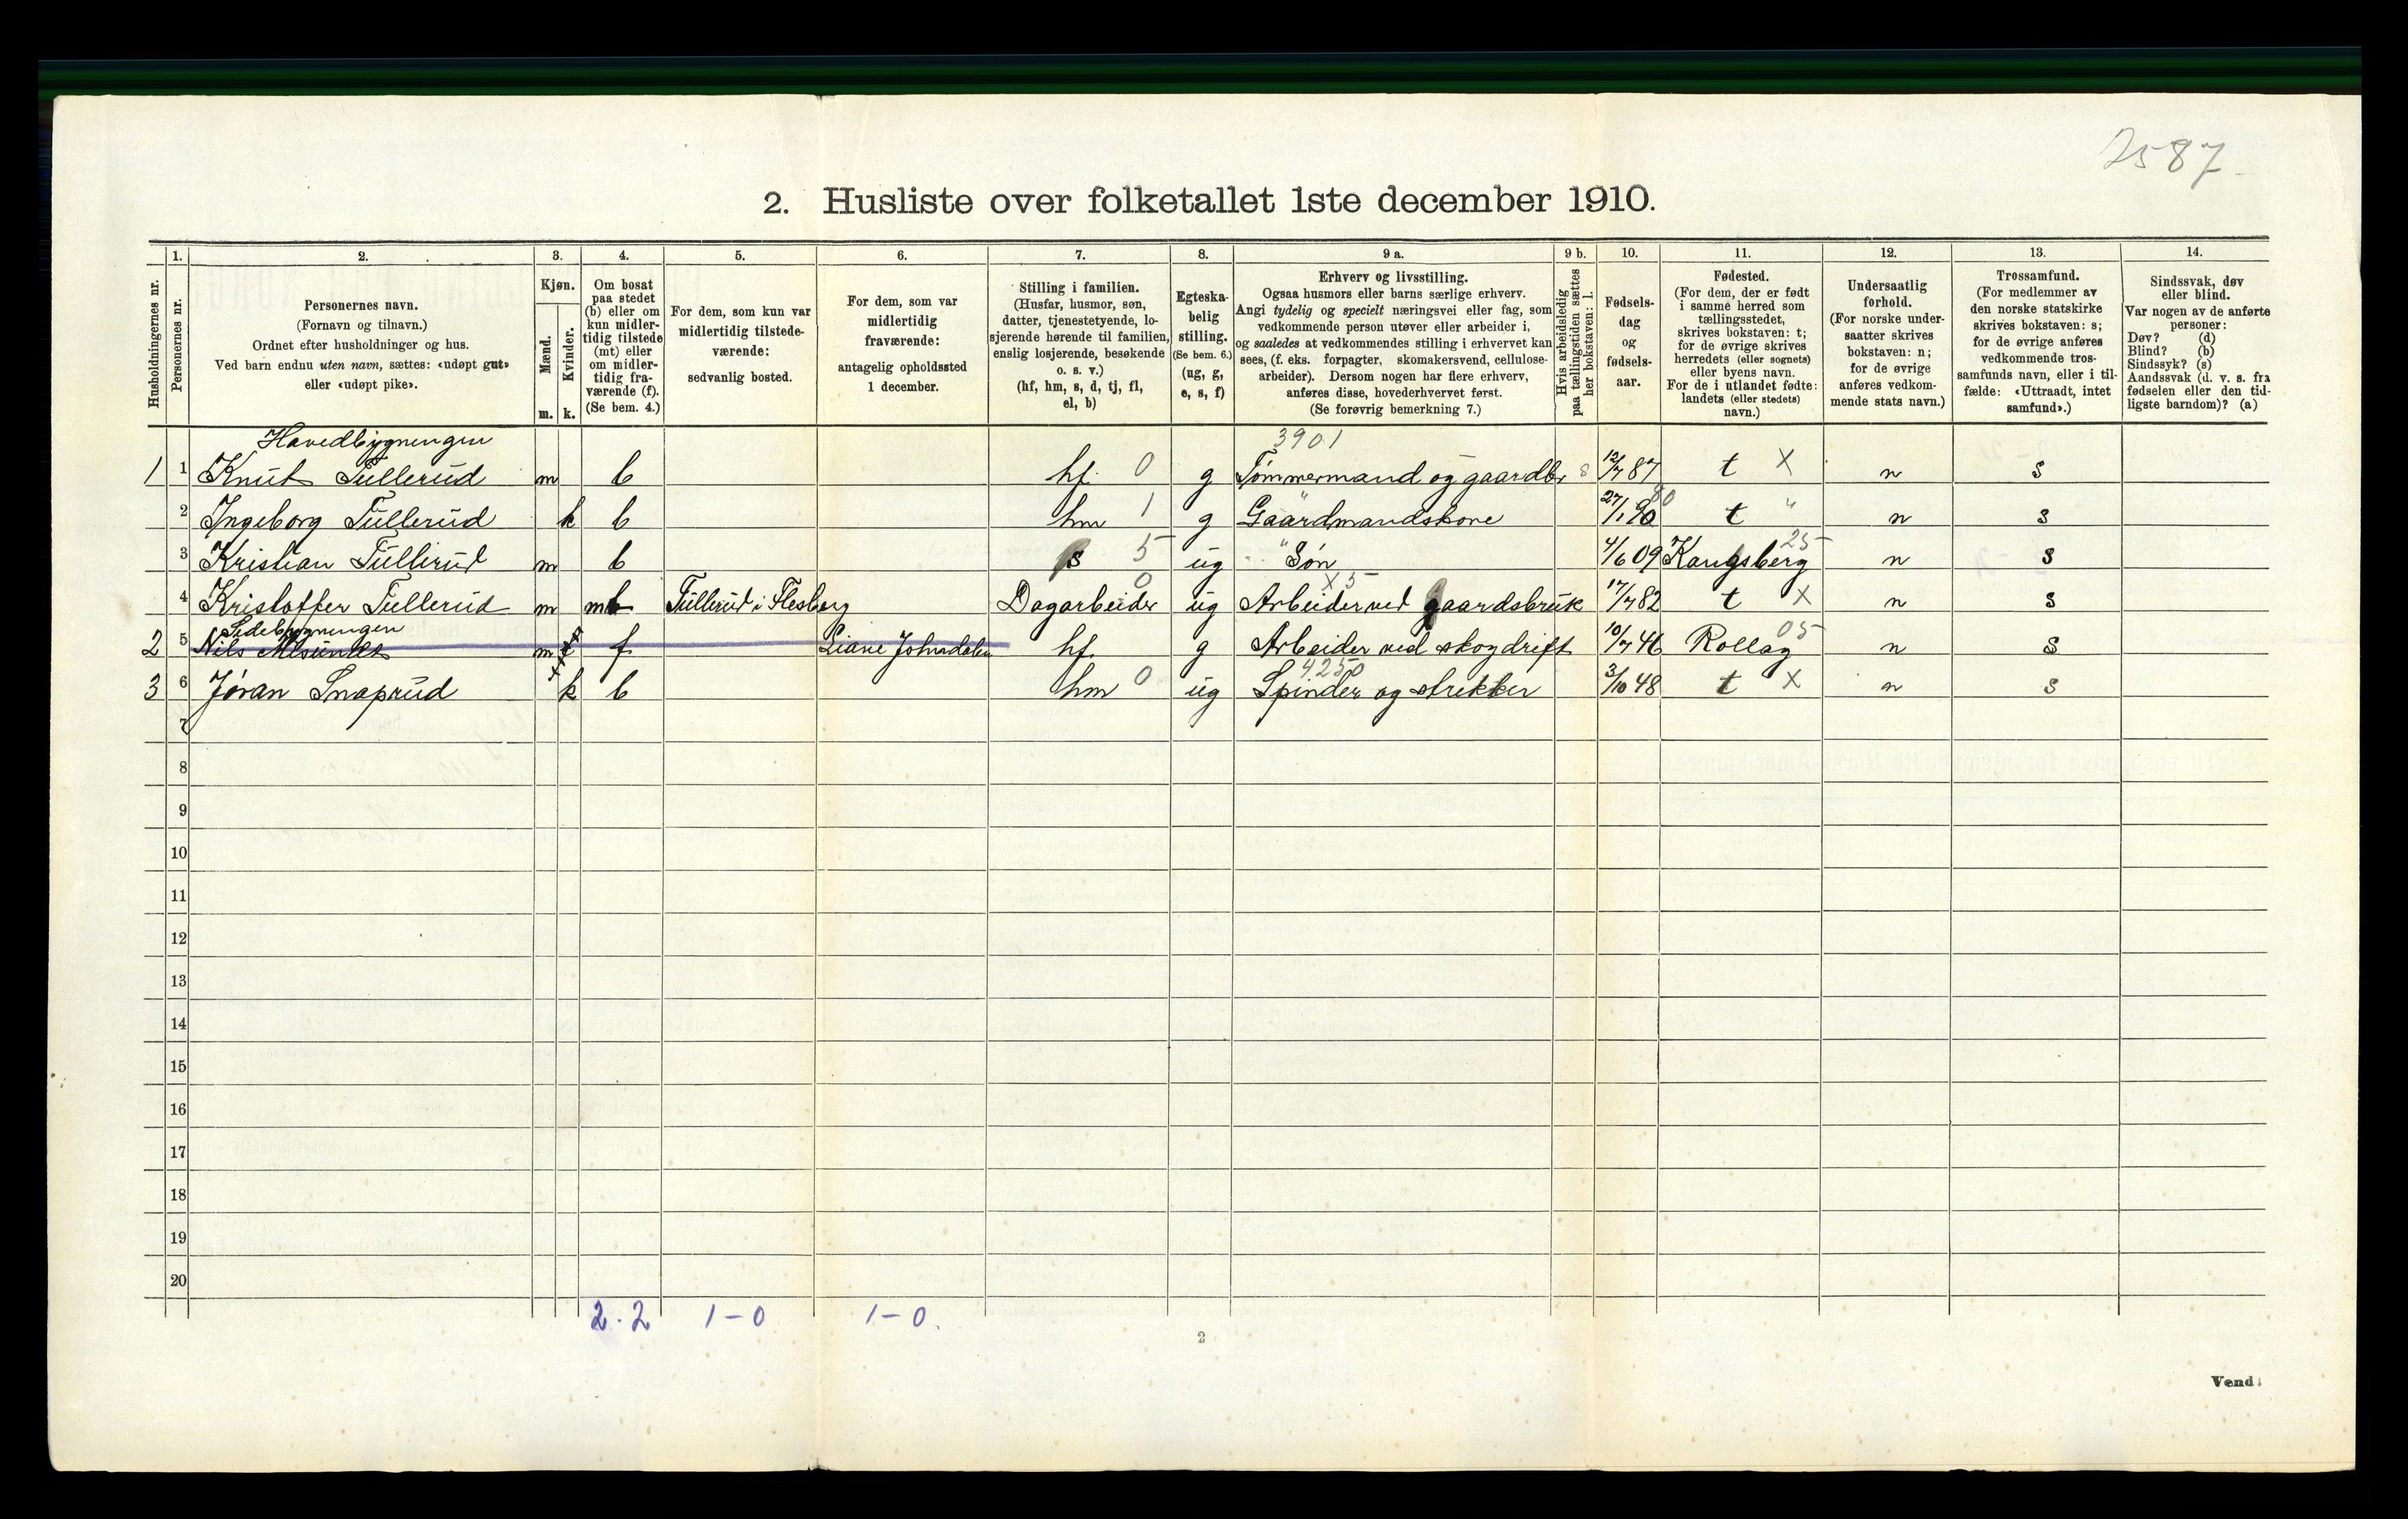 2587
2. Husliste over folketallet 1ste december 1910.
1. 2. 3. 4. 5. 6. 7. 8. 9 a. 9 b. 10. 11. 12. 13. 14.
Husholdningernes nr.
Personernes nr.
Personernes navn.
(Fornavn og tilnavn.)
Ordnet efter husholdninger og hus.
Ved barn endnu uten navn, sættes: «udøpt gut»
eller «udøpt pike».
Kjøn.
Mænd.
m.
Kvinder.
k.
Om bosat
paa stedet
(b) eller om
kun midler-
tidig tilstede
(mt) eller
om midler-
tidig fra-
værende (f).
(Se bem. 4.)
For dem, som kun var
midlertidig tilstede-
værende:
sedvanlig bosted.
For dem, som var
midlertidig
fraværende:
antagelig opholdssted
1 december.
Stilling i familien.
(Husfar, husmor, søn,
datter, tjenestetyende, lo-
sjerende hørende til familien,
enslig losjerende, besøkende
o. s. v.)
(hf, hm, s, d, tj, fl,
el, b)
Egteska-
belig
stilling.
(Se bem. 6.)
(ug, g,
e, s, f)
Erhverv og livsstilling.
Ogsaa husmors eller barns særlige erhverv.
Angi tydelig og specielt næringsvei eller fag, som
vedkommende person utøver eller arbeider i,
og saaledes at vedkommendes stilling i erhvervet kan
sees, (f. eks. forpagter, skomakersvend, cellulose-
arbeider). Dersom nogen har flere erhverv,
anføres disse, hovederhvervet først.
(Se forøvrig bemerkning 7.)
Hvis arbeidsledig
paa tællingstiden sættes
her bokstaven: l.
Fødsels-
dag
og
fødsels-
aar.
Fødested.
(For dem, der er født
i samme herred som
tællingsstedet,
skrives bokstaven: t;
for de øvrige skrives
herredets (eller sognets)
eller byens navn.
For de i utlandet fødte:
landets (eller stedets)
navn.)
Undersaatlig
forhold.
(For norske under-
saatter skrives
bokstaven: n;
for de øvrige
anføres vedkom-
mende stats navn.)
Trossamfund.
(For medlemmer av
den norske statskirke
skrives bokstaven: s;
for de øvrige anføres
vedkommende tros-
samfunds navn, eller i til-
fælde: «Uttraadt, intet
samfund».)
Sindssvak, døv
eller blind.
Var nogen av de anførte
personer:
Døv? (d)
Blind? (b)
Sindssyk? (s)
Aandssvak (d. v. s. fra
fødselen eller den tid-
ligste barndom)? (a)
Havedbygningen 3901
1 1 Knut Tullerud m b hf. 0 g Tømmermand og gaardbr 8 12/7 87 t X n s
2 Ingeborg Tullerud k b hm 1 g Gaardmandskone 27/1 90 80 t " n s
3 Kristian Tullerud m b s 5 ug " Søn 4/6 09 Kongsberg 25 n s
4 Kristoffer Tullerud m mt Tullerud i Flesberg Dagarbeider 0 ug Arbeider ved gaardsbruk X5 17/7 82 t X n s
Sidebygningen
2 5 Nils m f Liane Johnsdalen hf. g Arbeider ved skogdrift 10/7 46 Rollag 05 n s
3 6 Jøran Snaprud k b hm 0 ug Spinder og strikker 4250 3/10 48 t X n s
7
8
9
10
11
12
13
14
15
16
17
18
19
20
2-2 1-0 1-0.
2
Vend!